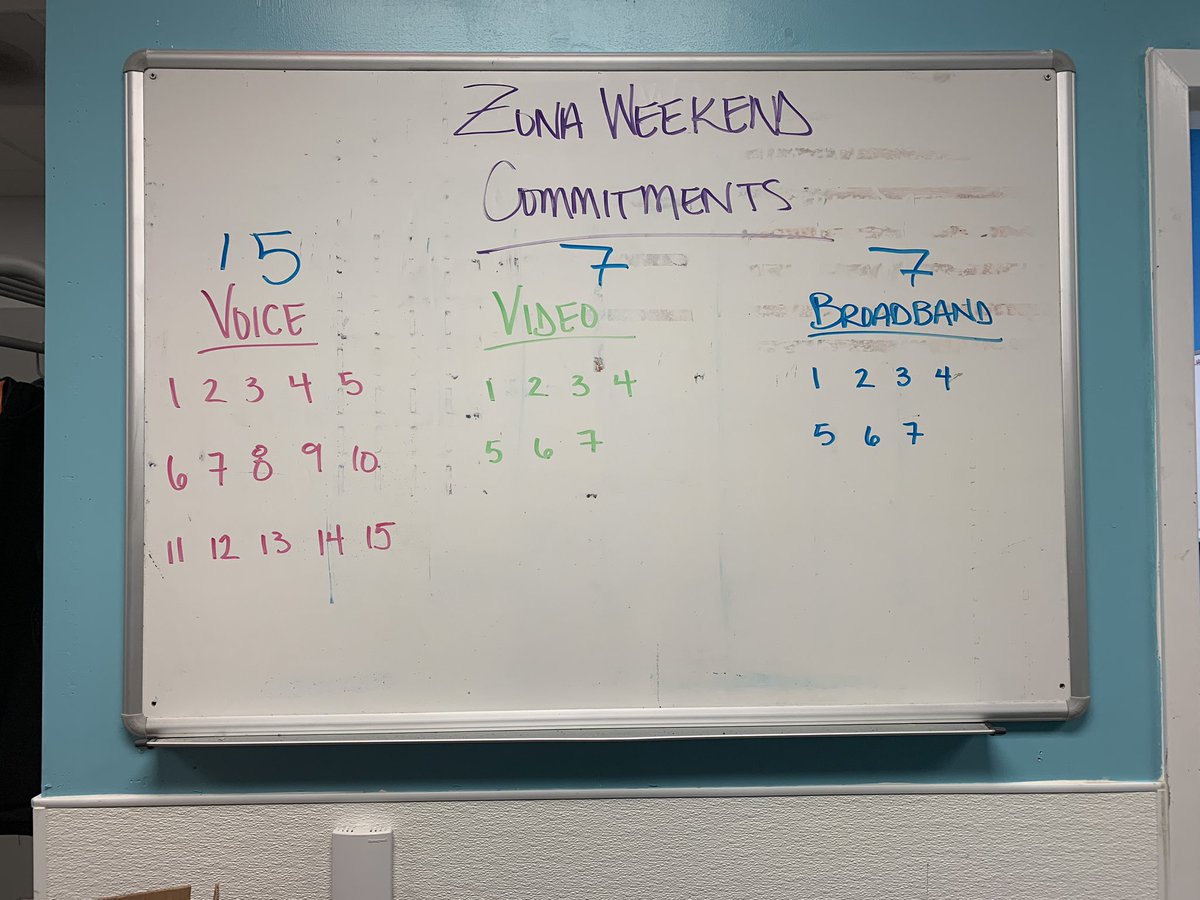 ZONA WEEKEND
COMMITMENTS
15 7 7
VOICE VIDEO BROADBAND
1 2 3 4 5 1 2 3 4 1 2 3 4
6 7 8 9 10 5 6 7 5 6 7
11 12 13 14 15